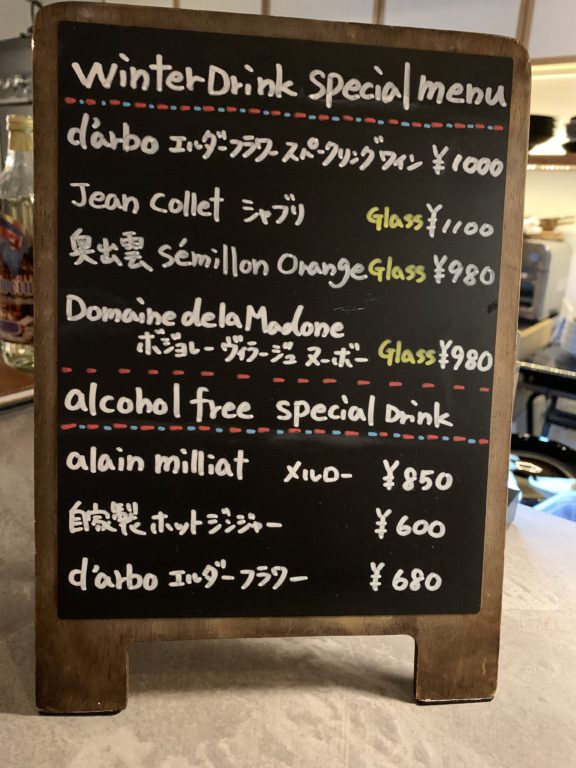 Winter Drink Special menu
d'arbo エルダーフラワー スパークリングワイン ¥1000
Jean Collet シャブリ Glass ¥1100
奥出雲 Sémillon Orange Glass ¥980
Domaine de la Madone
ボジョレー ヴィラージュ ヌーボー Glass ¥980
alcohol free special Drink
alain milliat メルロー ¥850
自家製 ホットジンジャー ¥600
d'arbo エルダーフラワー ¥680